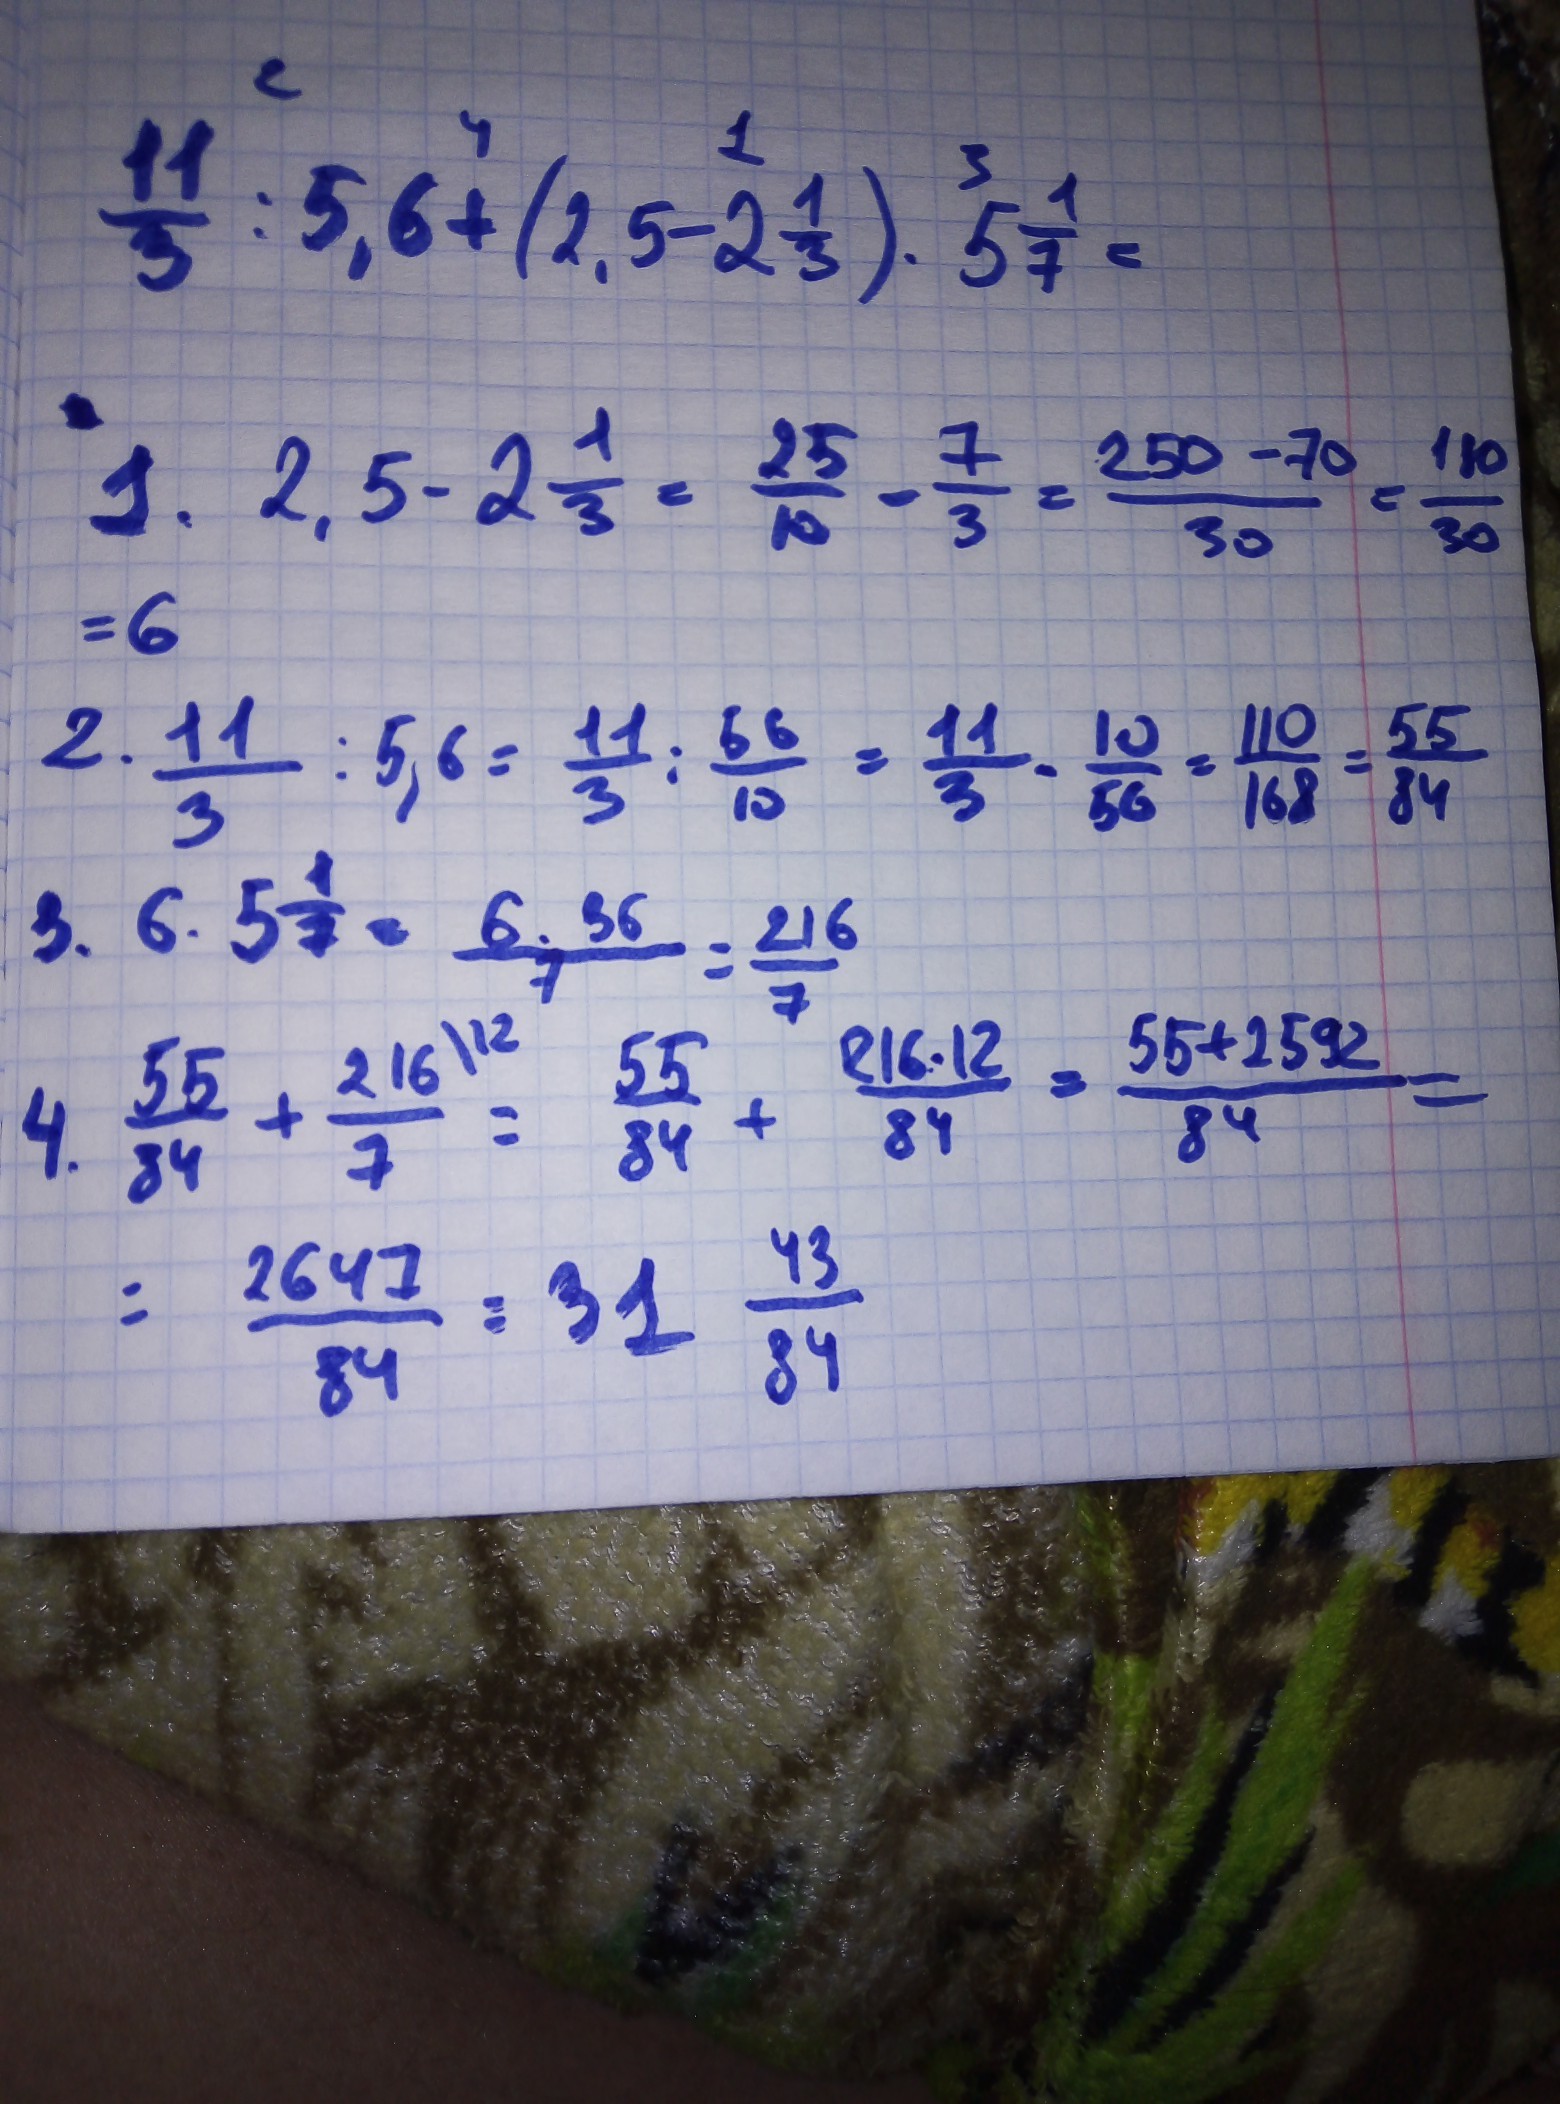 2 4 1 3
11/3 : 5,6 + (2,5 - 2 1/3) · 5 1/7 =
1. 2,5 - 2 1/3 = 25/10 - 7/3 = 250 - 70/30 = 180/30
= 6
2. 11/3 : 5,6 = 11/3 : 56/10 = 11/3 · 10/56 = 110/168 = 55/84
3. 6 · 5 1/7 = 6 · 36/7 = 216/7
4. 55/84 + 216\12/7 = 55/84 + 216·12/84 = 55+2592/84 =
= 2647/84 = 31 43/84